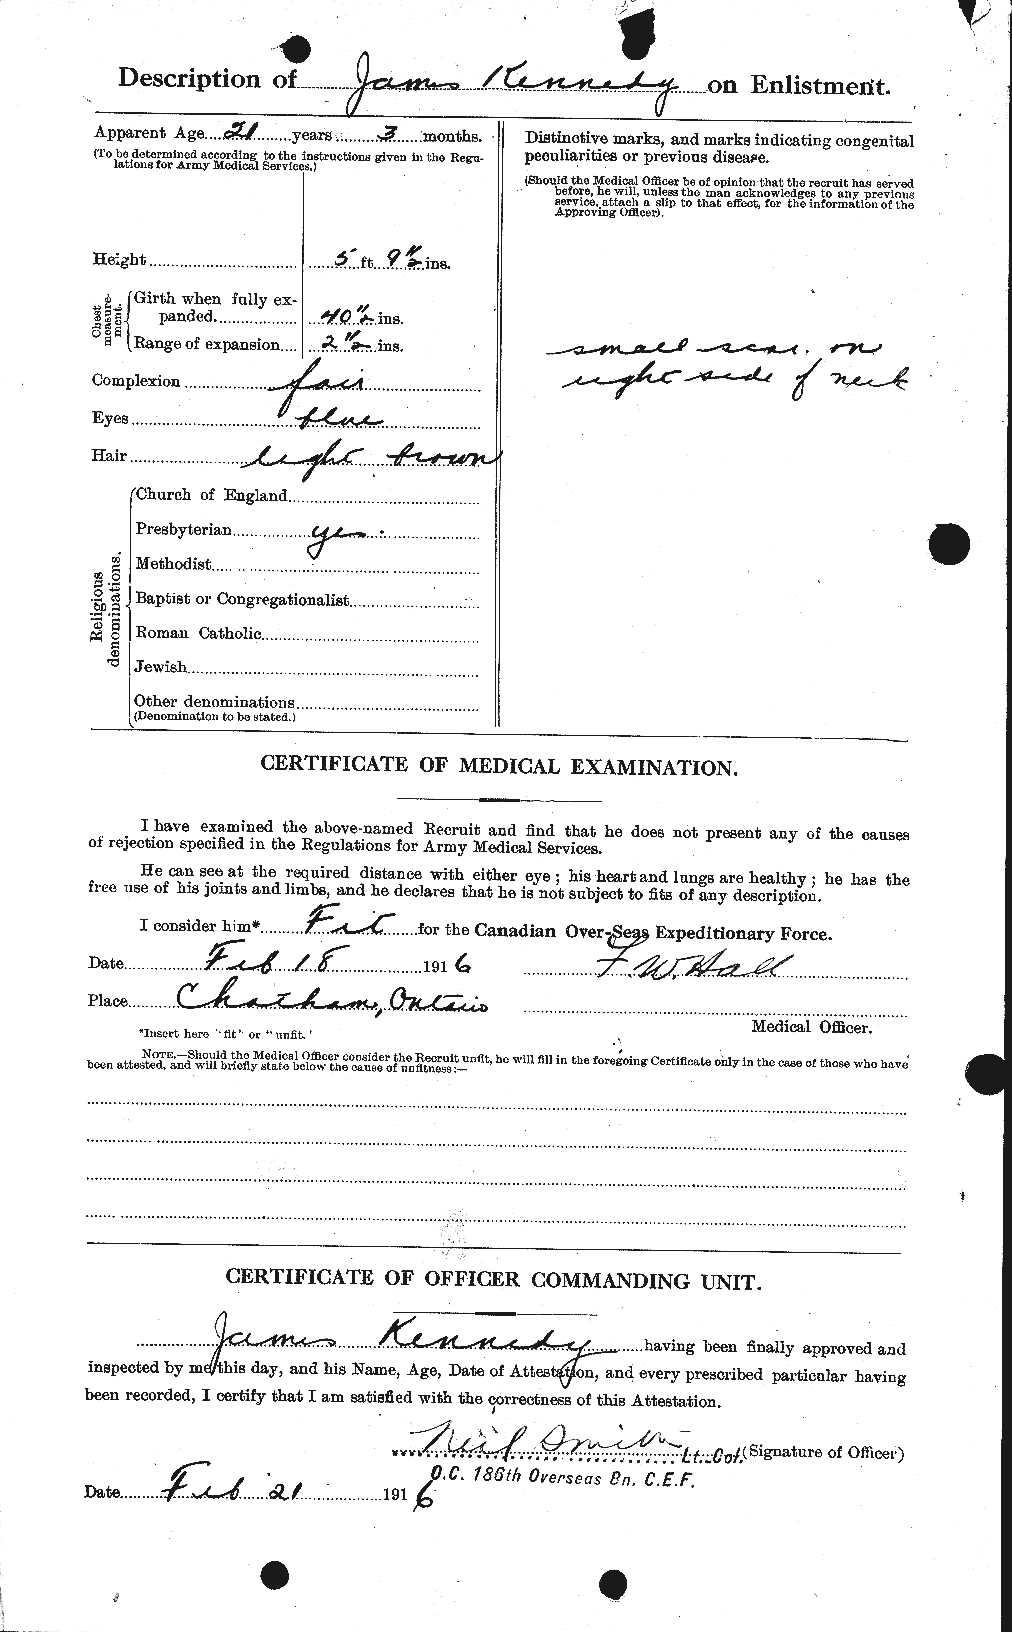 Description of James Kennedy on Enlistment.
Apparent Age 21 years 3 months.
(To be determined according to the instructions given in the Regu-
lations for Army Medical Services.)
Height 5 ft. 9 1/2 ins.
Chest measure-ment.
Girth when fully ex-
panded 40 1/2 ins.
Range of expansion 2 1/2 ins.
Complexion fair
Eyes blue
Hair light brown
Religious denominations.
Church of England
Presbyterian yes
Methodist
Baptist or Congregationalist
Roman Catholic
Jewish
Other denominations
(Denomination to be stated.)
Distinctive marks, and marks indicating congenital
peculiarities or previous disease.
(Should the Medical Officer be of opinion that the recruit has served
before, he will, unless the man acknowledges to any previous
service, attach a slip to that effect, for the information of the
Approving Officer).
small scar on
right side of neck
CERTIFICATE OF MEDICAL EXAMINATION.
I have examined the above-named Recruit and find that he does not present any of the causes
of rejection specified in the Regulations for Army Medical Services.
He can see at the required distance with either eye; his heart and lungs are healthy; he has the
free use of his joints and limbs, and he declares that he is not subject to fits of any description.
I consider him* Fit for the Canadian Over-Seas Expeditionary Force.
Date Feb 18 1916 F. W. Hall
Place Chatham, Ontario
Medical Officer.
*Insert here "fit" or "unfit."
NOTE.—Should the Medical Officer consider the Recruit unfit, he will fill in the foregoing Certificate only in the case of those who have
been attested, and will briefly state below the cause of unfitness:—
CERTIFICATE OF OFFICER COMMANDING UNIT.
James Kennedy having been finally approved and
inspected by me this day, and his Name, Age, Date of Attestation, and every prescribed particular having
been recorded, I certify that I am satisfied with the correctness of this Attestation.
Neil Smith Lt. Col. (Signature of Officer)
O.C. 186th Overseas Bn. C.E.F.
Date Feb 21 1916